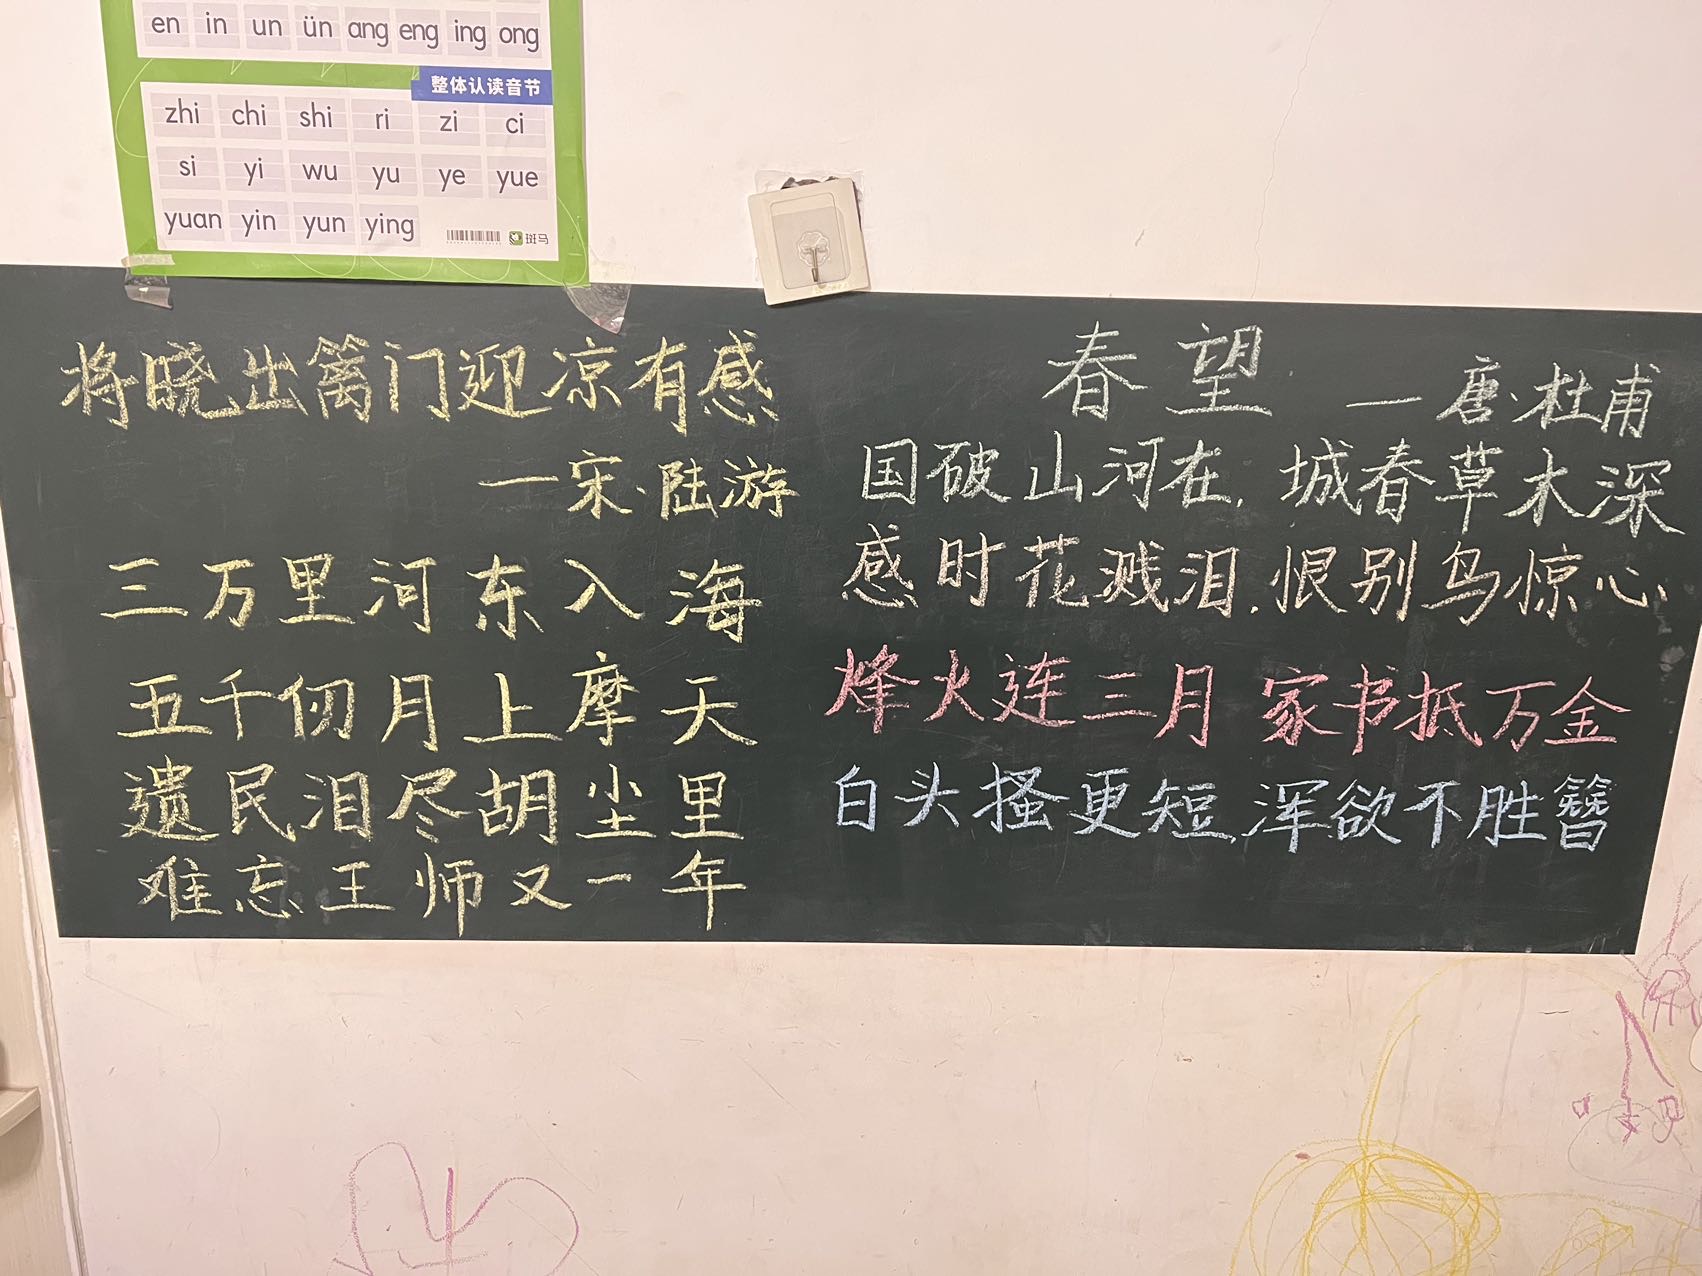 en in un ün ang eng ing ong
整体认读音节
zhi chi shi ri zi ci
si yi wu yu ye yue
yuan yin yun ying
斑马
将晓出篱门迎凉有感
一宋·陆游
三万里河东入海
五千仞月上摩天
遗民泪尽胡尘里
难忘王师又一年
春望
一唐·杜甫
国破山河在,城春草木深
感时花溅泪,恨别鸟惊心
烽火连三月 家书抵万金
白头搔更短,浑欲不胜簪